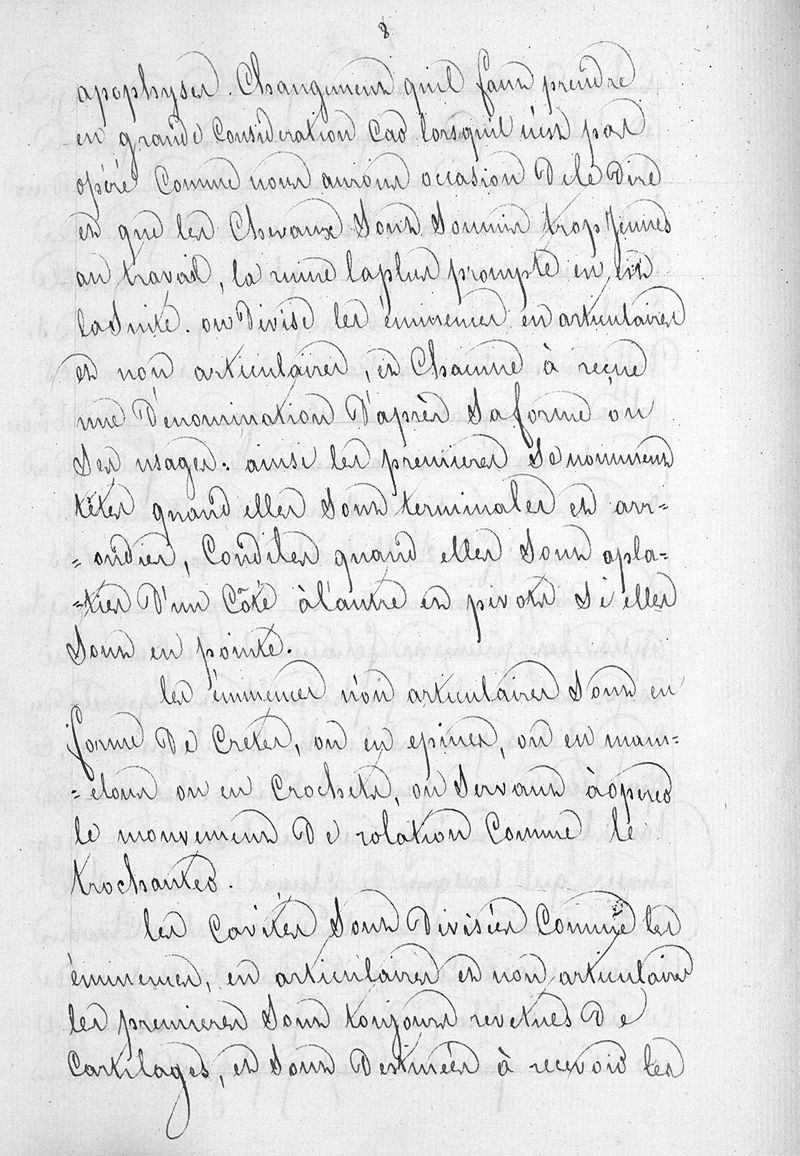 8
apophyses. Changement qu'il faut prendre
en grande Consideration Car lorsquil n'est pas
opéré Comme nous aurons occasion De le Dire
et que les Chevaux Sont Soumis trop Jeunes
au travail, la ruine laplus prompte en est
la Suite. on Divise les éminences en articulaires
et non articulaires, et Chacune à reçue
une Dénomination D'après Sa forme ou
Ses usages: ainsi les premieres Se nomment
têtes quand elles Sont terminales et arr=
=ondies, Condiles quand elles Sont apla=
=ties D'un Côté à l'autre et pivots Si elles
Sont en pointe.
les éminences non articulaires Sont en
forme De Cretes, ou en epines, ou en mam=
=elons ou en Crochets, ou Servant à opérer
le mouvement De rotation Comme le
trochanter.
les Cavités Sont Divisées Comme les
éminences, en articulaires et non articulaires
les premieres Sont toujours revetues De
Cartilages, et Sont Destinées à recevoir les